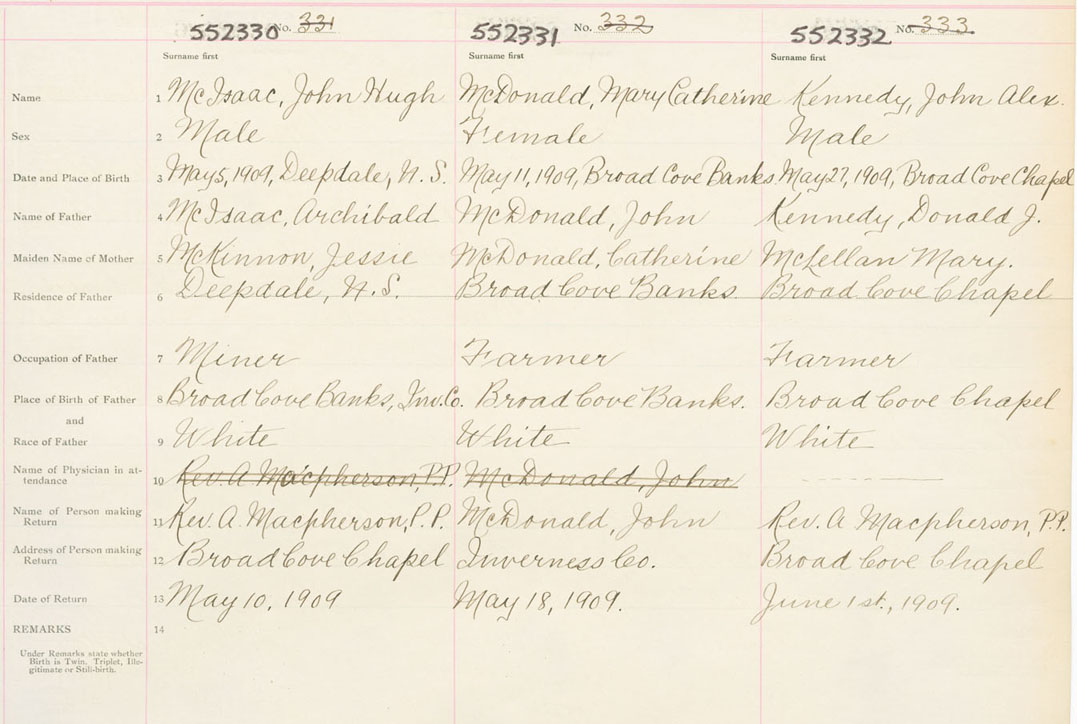 552330 No. 331 552331 No. 332 552332 No. 333
Surname first Surname first Surname first
Name 1 McIsaac, John Hugh McDonald, Mary Catherine Kennedy, John Alex.
Sex 2 Male Female Male
Date and Place of Birth 3 May 5, 1909, Deepdale, N.S. May 11, 1909, Broad Cove Banks. May 27, 1909, Broad Cove Chapel
Name of Father 4 McIsaac, Archibald McDonald, John Kennedy, Donald J.
Maiden Name of Mother 5 McKinnon, Jessie McDonald, Catherine McLellan Mary.
Residence of Father 6 Deepdale, N.S. Broad Cove Banks. Broad Cove Chapel
Occupation of Father 7 Miner Farmer Farmer
Place of Birth of Father 8 Broad Cove Banks, Inv. Co. Broad Cove Banks. Broad Cove Chapel
and
Race of Father 9 White White White
Name of Physician in at-
tendance 10 Rev. A Macpherson, P.P. McDonald, John
Name of Person making
Return 11 Rev. A. Macpherson, P.P. McDonald, John Rev. A Macpherson, P.P.
Address of Person making
Return 12 Broad Cove Chapel Inverness Co. Broad Cove Chapel
Date of Return 13 May 10, 1909 May 18, 1909. June 1st., 1909.
REMARKS 14
Under Remarks state whether
Birth is Twin. Triplet, Ille-
gitimate or Still-birth.